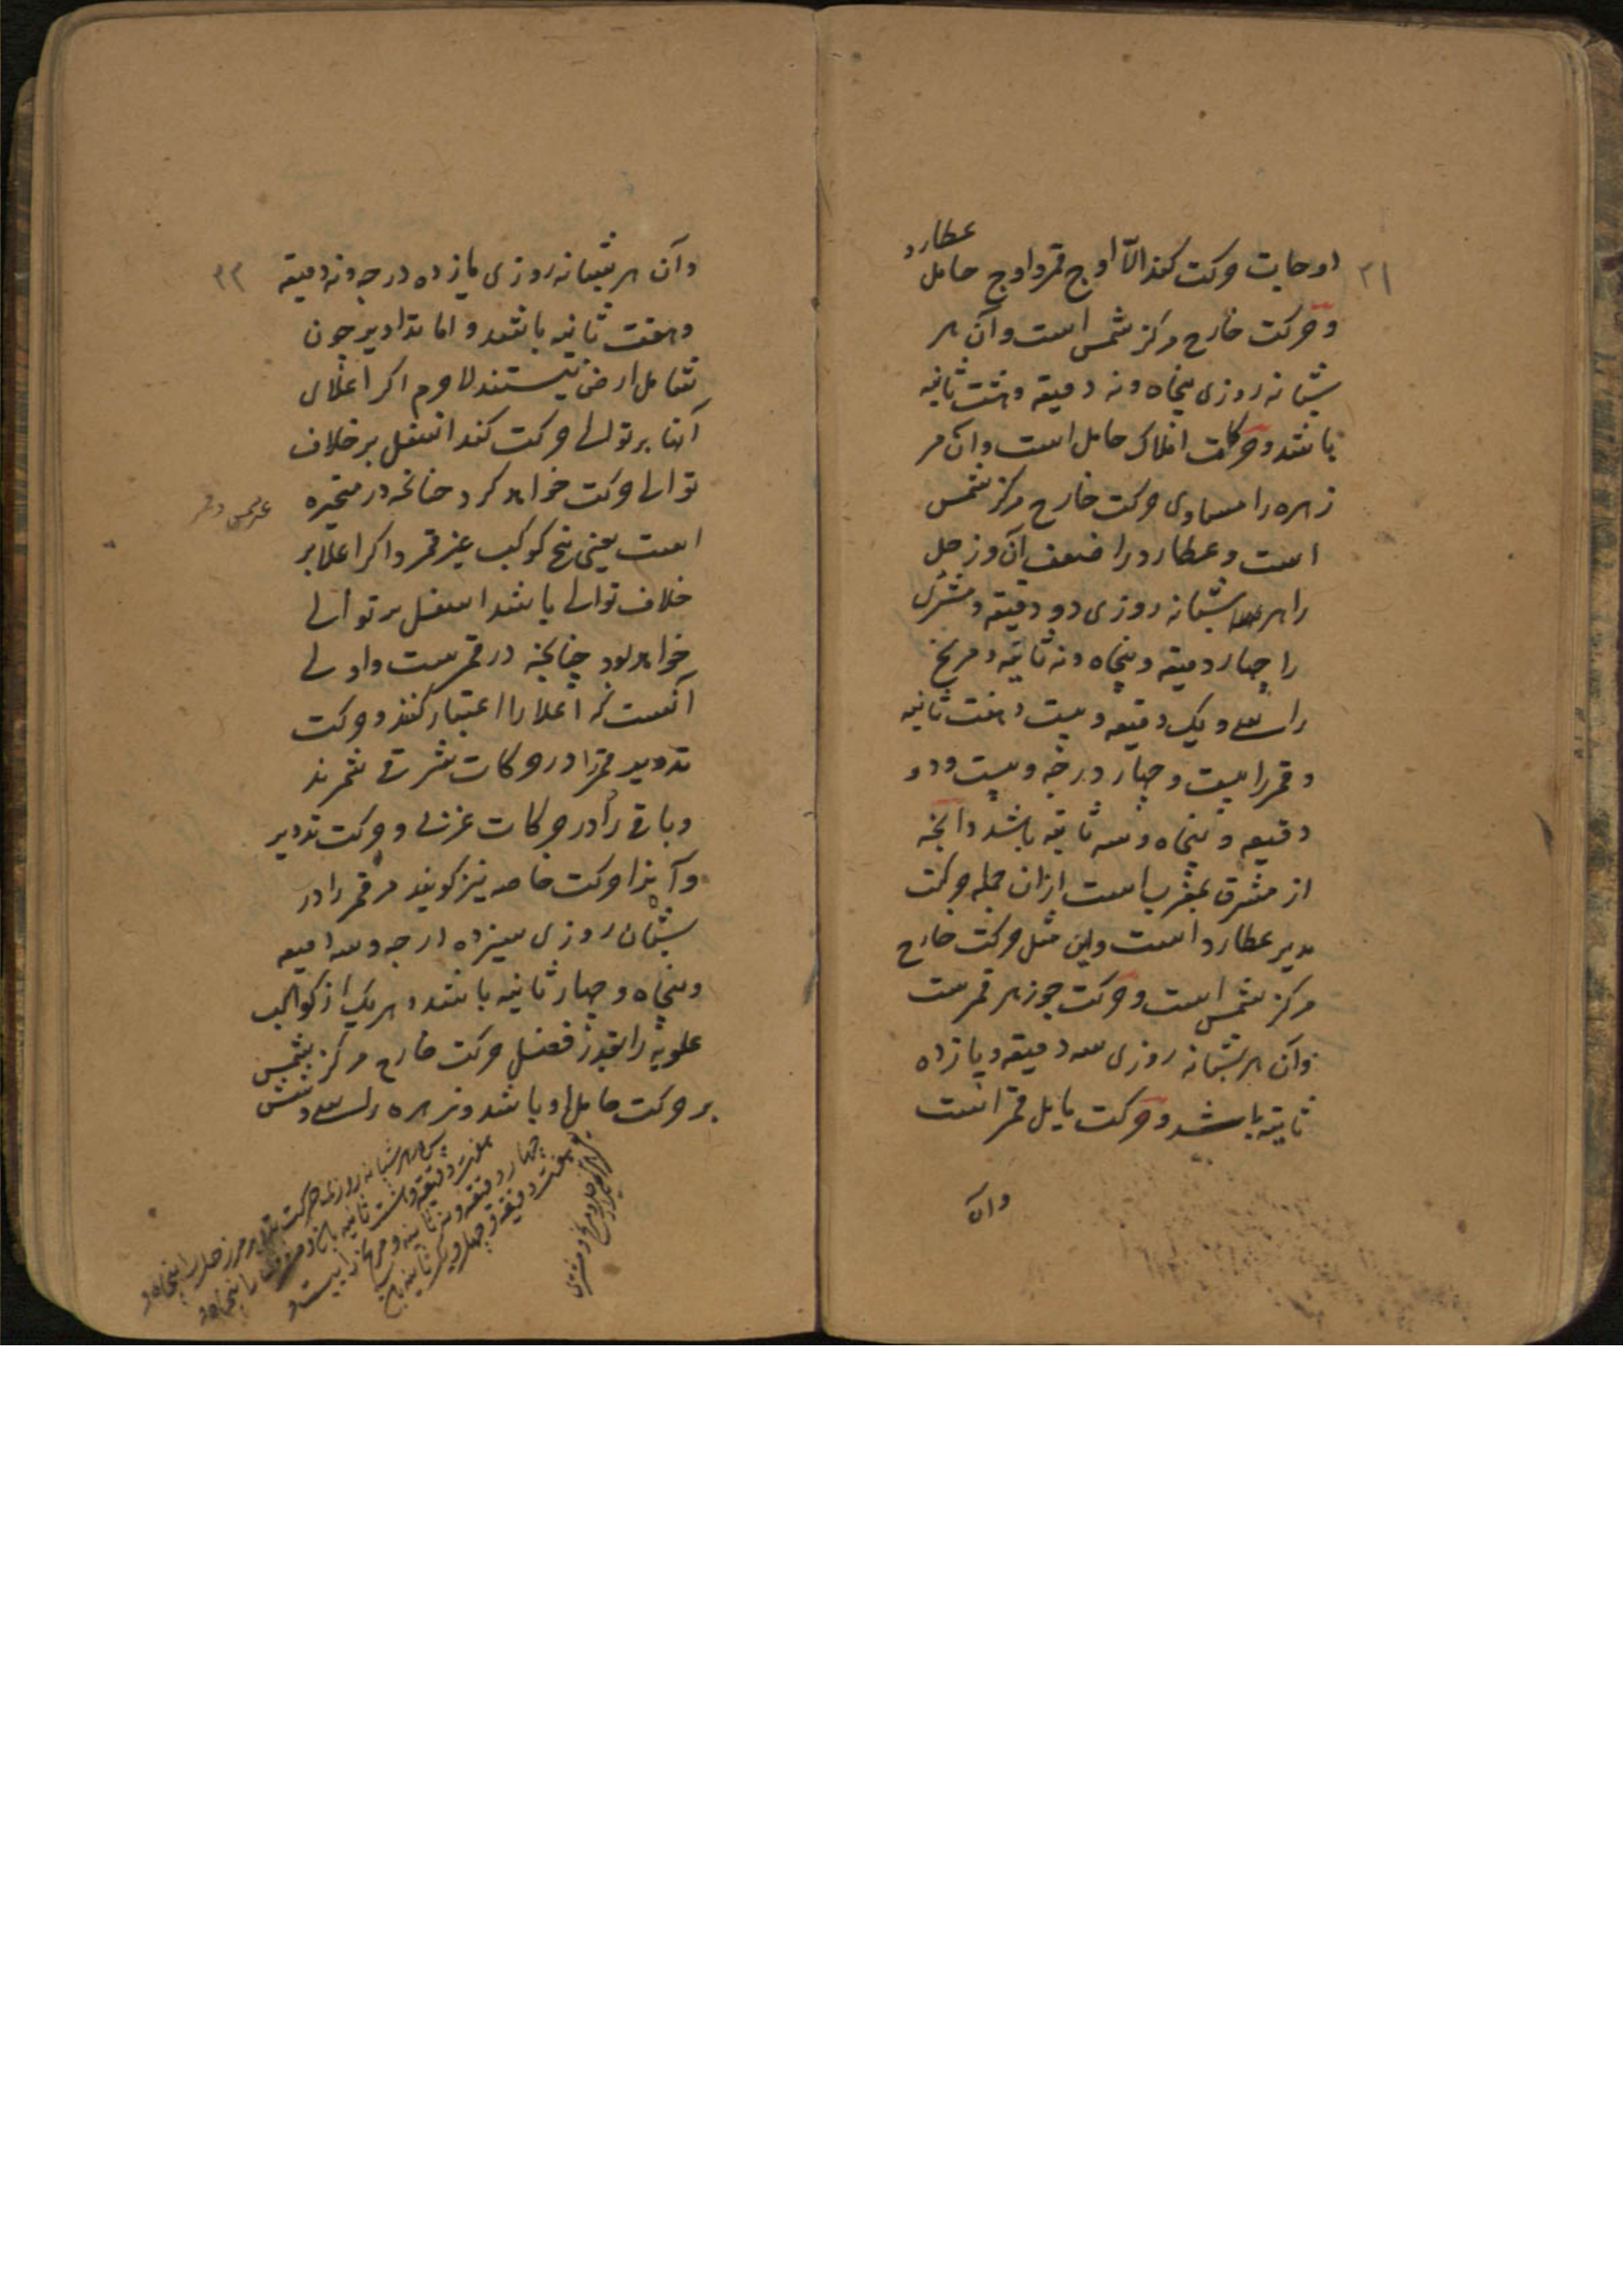 ۳۱
اوجات حرکت کند الّا اوج قمر و اوج حامل عطارد
و حرکت خارج مرکز شمس است و آن هر
شبانه روزی پنجاه و نه دقیقه و هشت ثانیه
باشد و حرکات افلاک حامل است و آن مر
زهره را مساوی حرکت خارج مرکز شمس
است و عطارد را ضعف آن و زحل
را هر شبانه روزی دو دقیقه و مشتری
را چهار دقیقه و پنجاه و نه ثانیه و مریخ
را سی و یک دقیقه و بیست و هفت ثانیه
و قمر را بیست و چهار درجه و بیست و دو
دقیقه و پنجاه و سه ثانیه باشد و آنچه
از مشرق بمغرب است ازان جمله حرکت
مدیر عطارد است و این مثل حرکت خارج
مرکز شمس است و حرکت جوزهر قمرست
و آن هر شبانه روزی سه دقیقه و یازده
ثانیه باشد و حرکت مایل قمر است
وآن
۳۲
وآن هر شبانه روزی یازده درجه و نه دقیقه
و هفت ثانیه باشد و اما تداویر چون
شامل ارض نیستند لاجرم اگر اعلای
آنها بر توالی حرکت کند اسفل بر خلاف
توالی حرکت خواهد کرد چنانچه در متحیره
است یعنی پنج کوکب غیر قمر و اگر اعلا بر
خلاف توالی باشد اسفل بر توالی
خواهد بود چنانچه در قمرست و اولی
آنست که اعلا را اعتبار کنند و حرکت
تدویر قمر را در حرکات شرقی شمرند
و باقی را در حرکات غربی و حرکت تدویر
و آنرا حرکت خاصه نیز گویند مر قمر را در
شبان روزی سیزده درجه و سه دقیقه
و پنجاه و چهار ثانیه باشد و هر یک از کواکب
علویه را بقدر فضل حرکت خارج مرکز شمس
بر حرکت حامل او باشد و زهره را سی و شش
پس هر شبانه روزی حرکت تدویر مر زحل را پنجاه و
هفت دقیقه و هشت ثانیه باشد و مشتری را پنجاه و
چهار دقیقه و نه ثانیه و مریخ را بیست و
هفت دقیقه و چهل و یک ثانیه